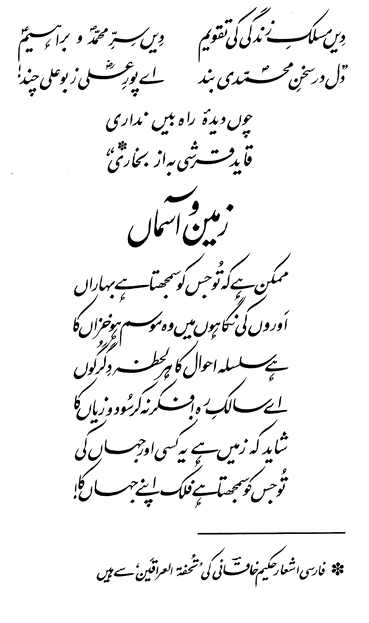 دیں مسلکِ زندگی کی تقویم دیں سِرِّ محمدؐ و براہیمؑ
”دل در سخنِ محمدیؐ بند اے پورِ علیؓ ز بو علی چند!
چوں دیدۂ راہ بیں نداری
قاید قرشی بہ از بخاری“ ✽
زمین و آسماں
ممکن ہے کہ تُو جس کو سمجھتا ہے بہاراں
اَوروں کی نگاہوں میں وہ موسم ہو خزاں کا
ہے سلسلہ احوال کا ہر لحظہ دِگرگُوں
اے سالکِ رہ! فکر نہ کر سُود و زیاں کا
شاید کہ زمیں ہے یہ کسی اور جہاں کی
تُو جس کو سمجھتا ہے فلک اپنے جہاں کا!
✽ فارسی اشعار حکیم خاقانی کی ’تُحفۃ العراقین‘ سے ہیں